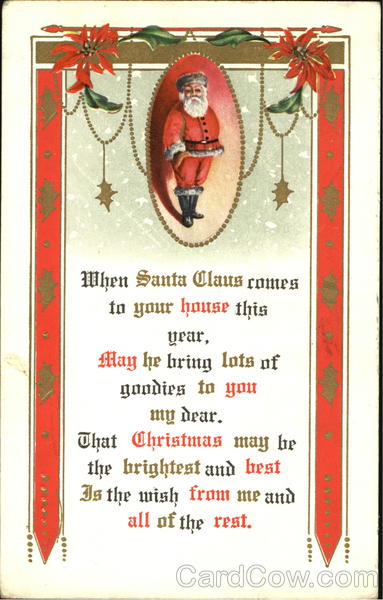 When Santa Claus comes
to your house this
year,
May he bring lots of
goodies to you
my dear.
That Christmas may be
the brightest and best
Is the wish from me and
all of the rest.
CardCow.com